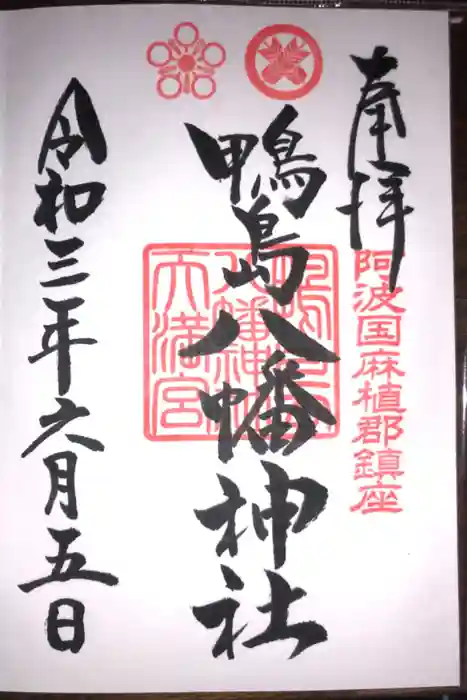 奉拝
阿波国麻植郡鎮座
鴨島八幡神社
天満宮
令和三年六月五日